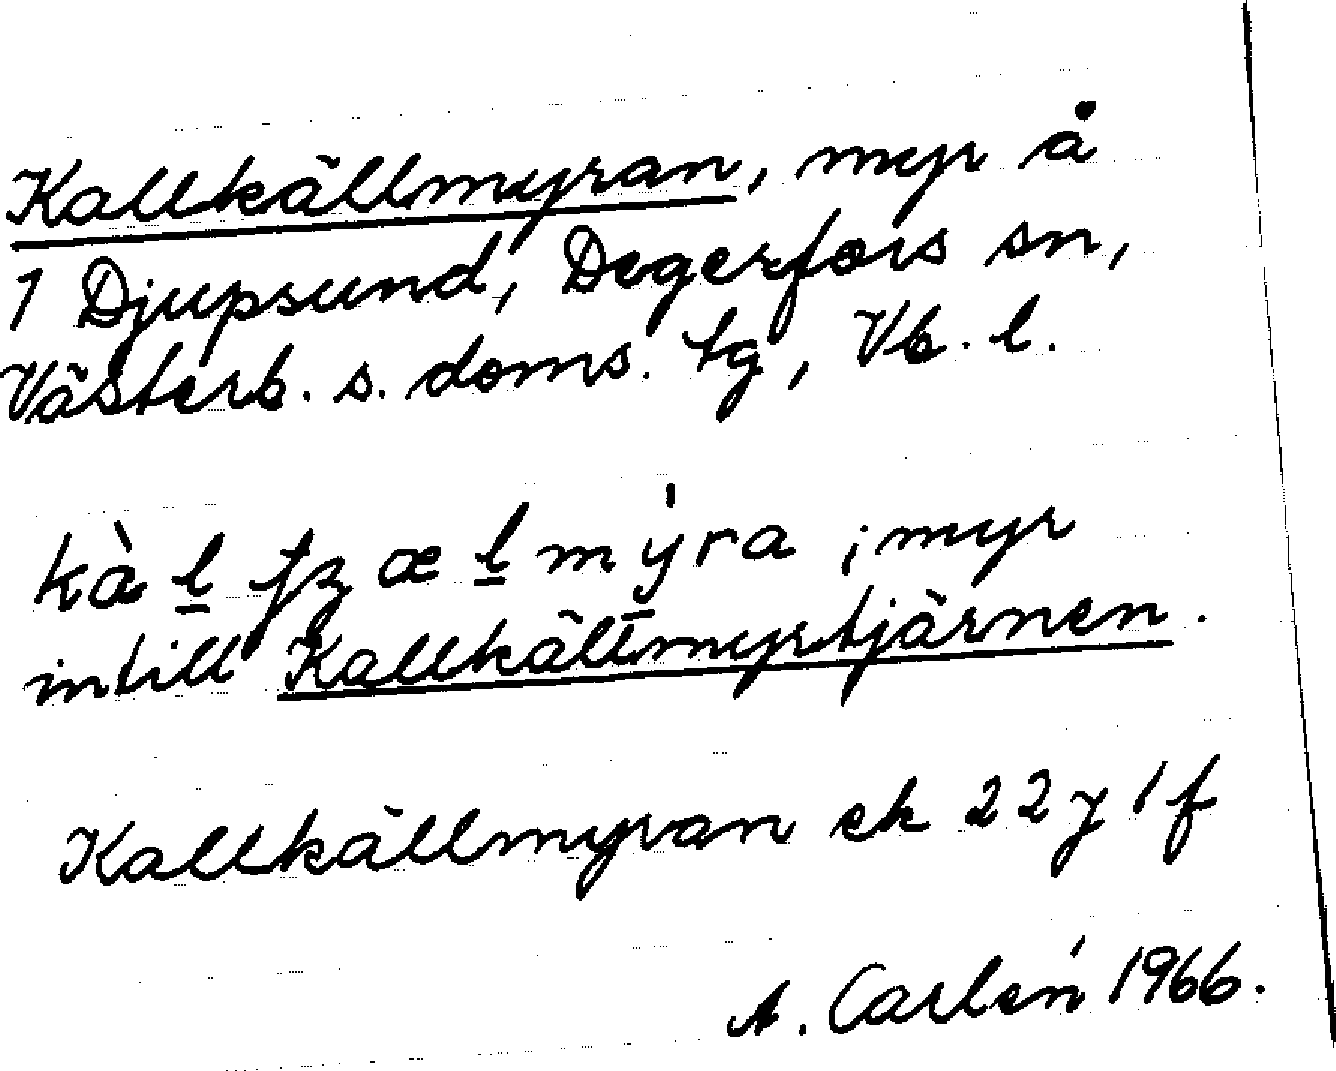 Kallkällmyran, myr å
1 Djupsund, Degerfors sn,
Västerb. s. doms. tg, Vb. l.
kàl̲ æl̲my̲̍ra ; myr
intill Kallkällmyrtjärnen.
Kallkällmyran ek 22 y 1 f
A. Carlén 1966.